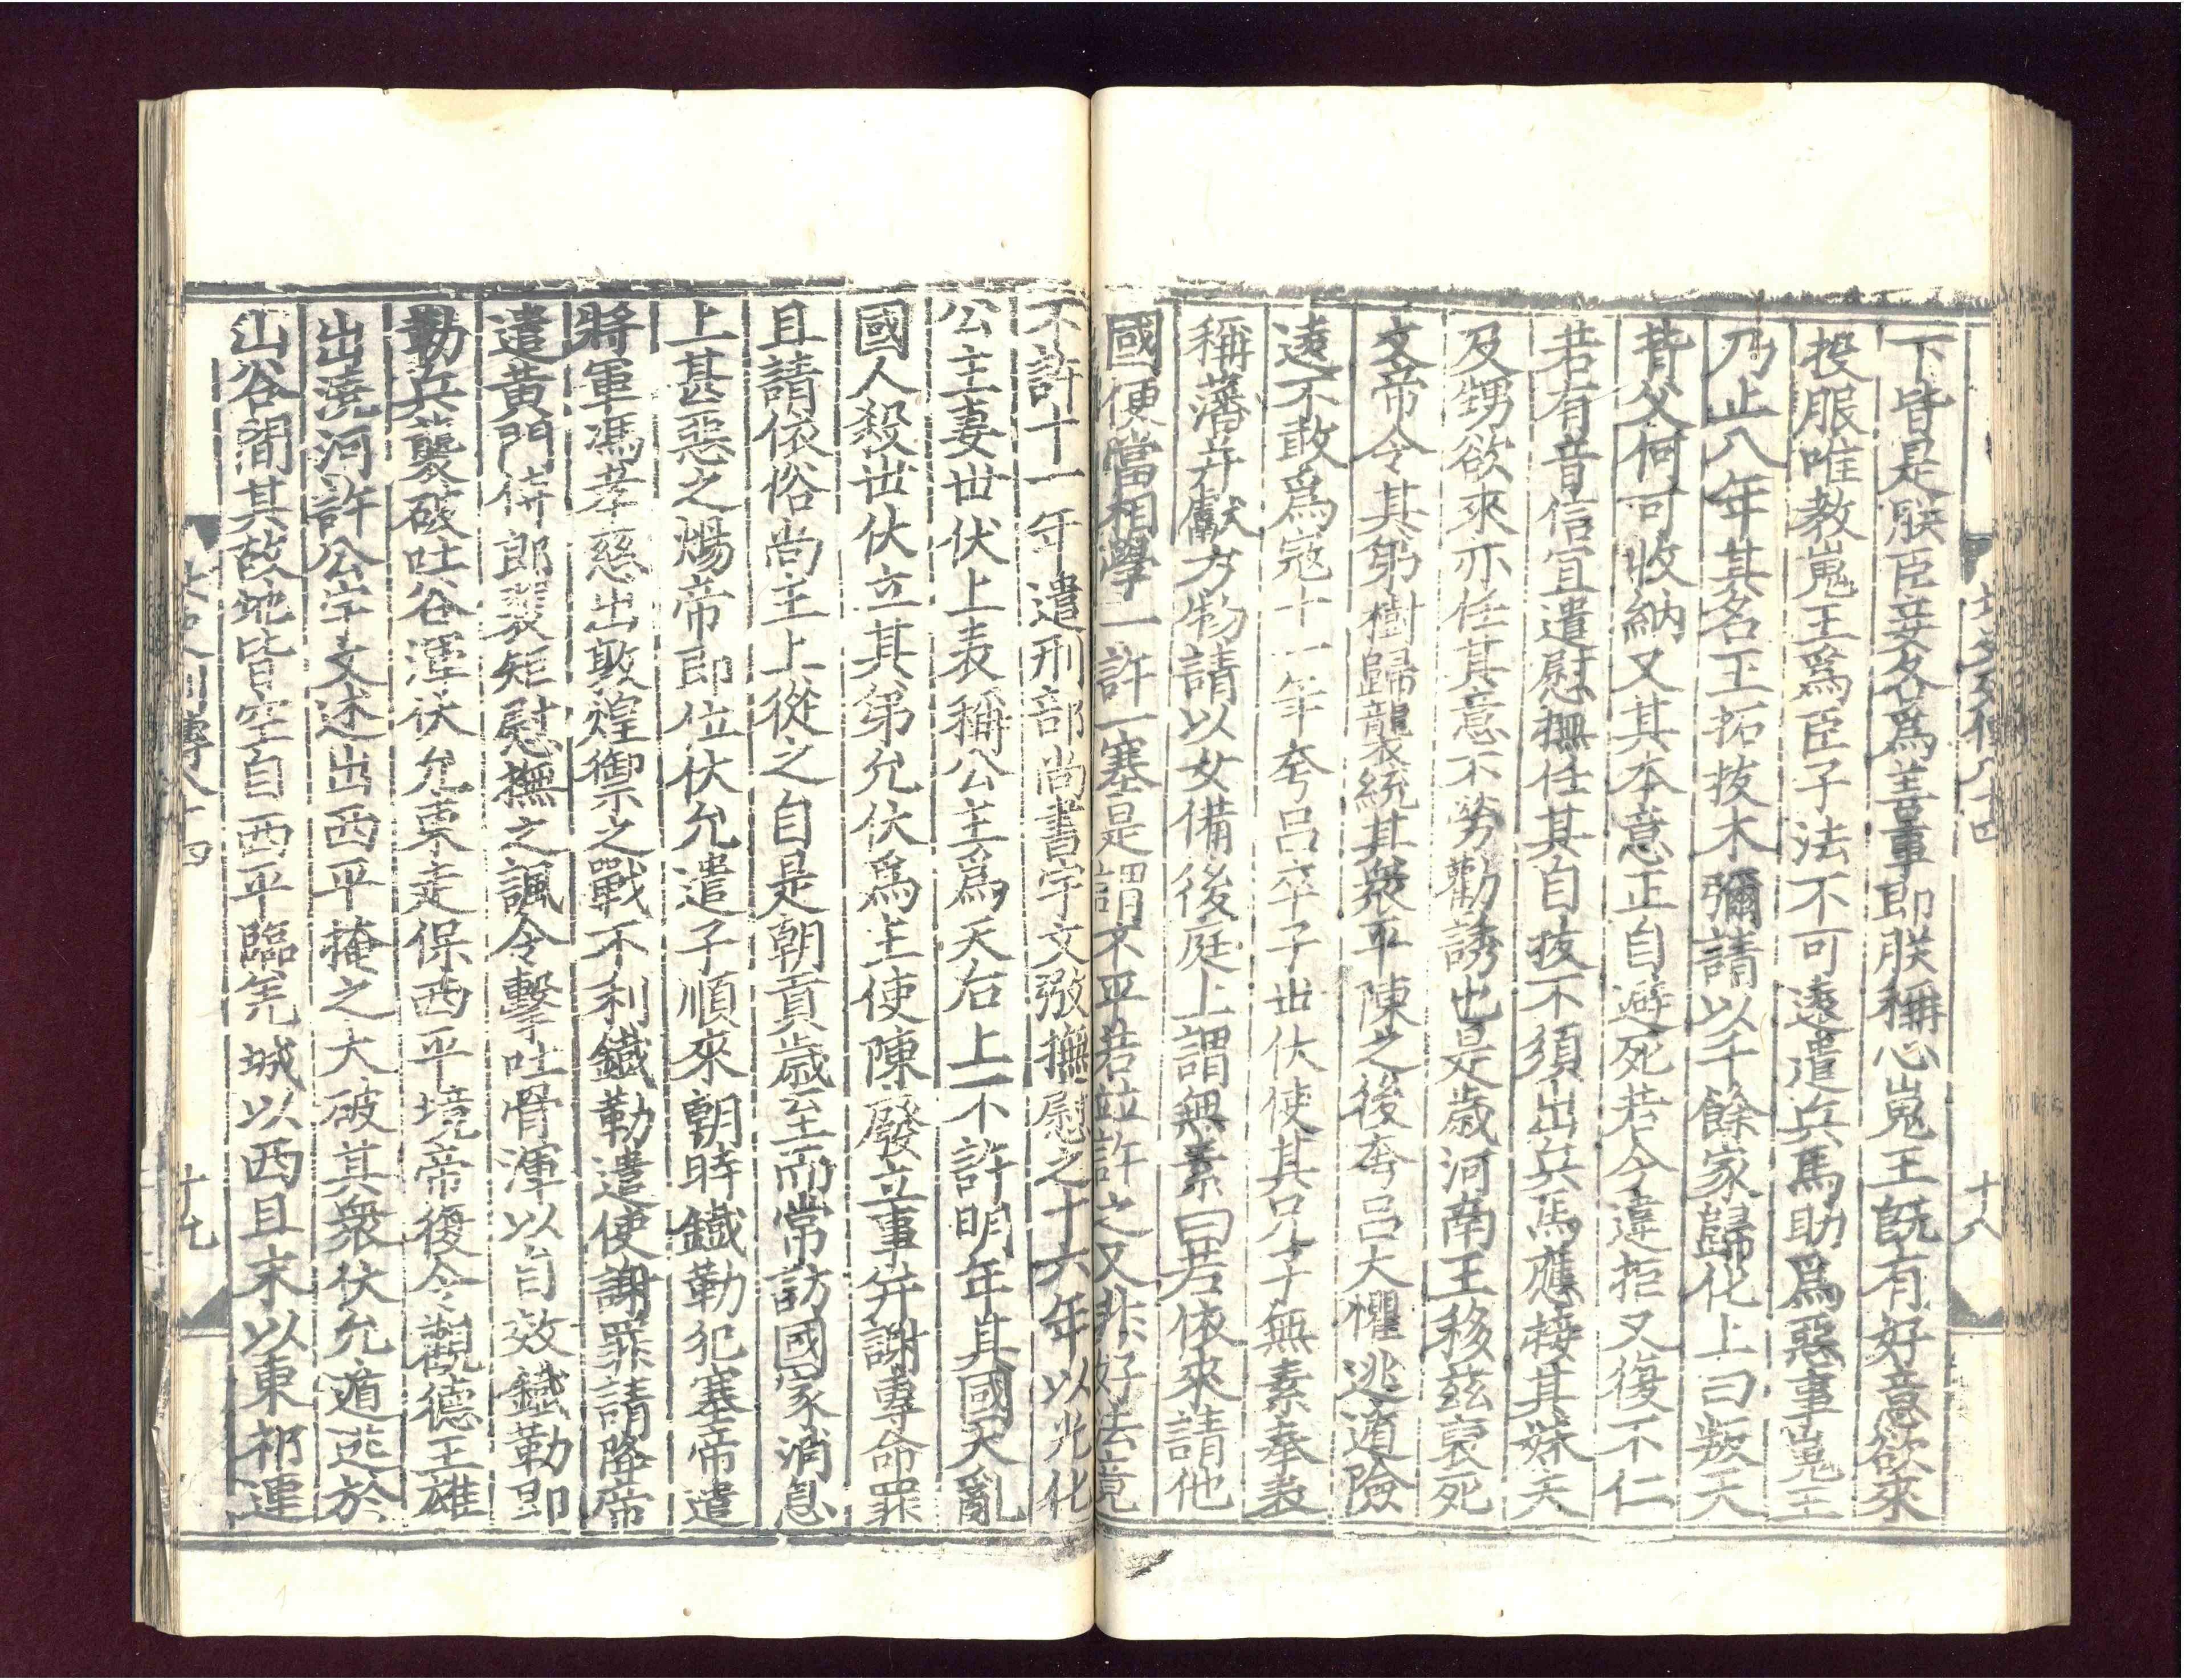 北史列傳八十四 十八
下皆是朕臣妾各爲善事即朕稱心嵬王旣有好意欲來
投服唯教嵬王爲臣子法不可遠遣兵馬助爲惡事嵬王
乃止八年其名王拓拔木彌請以千餘家歸化上曰叛天
背父何可收納又其本意正自避死若今違拒又復不仁
若有音信宜遣慰撫任其自拔不須出兵馬應接其妹夫
及甥欲來亦任其意不勞勸誘也是歲河南王移茲裒死
文帝令其弟樹歸襲統其衆平陳之後夸呂大懼逃遁險
遠不敢爲寇十一年夸呂卒子世伏使其兄子無素奉表
稱藩并獻方物請以女備後庭上謂無素曰若依來請他
國便當相學一許一塞是謂不平若並許之又非好法竟
不許十一年遣刑部尚書宇文弢撫慰之十六年以光化
公主妻世伏上表稱公主爲天后上不許明年其國大亂
國人殺世伏立其弟允伏爲主使陳廢立事并謝專命罪
且請依俗尚主上從之自是朝貢歲至而常訪國家消息
上甚惡之煬帝即位伏允遣子順來朝時鐵勒犯塞帝遣
將軍馮孝慈出敦煌禦之戰不利鐵勒遣使謝罪請降帝
遣黃門侍郎裴矩慰撫之諷令擊吐谷渾以自效鐵勒即
勒兵襲破吐谷渾伏允東走保西平境帝復令觀德王雄
出澆河許公宇文述出西平掩之大破其衆伏允遁逃於
山谷間其故地皆空自西平臨羌城以西且末以東祁連
列傳八十四 十九